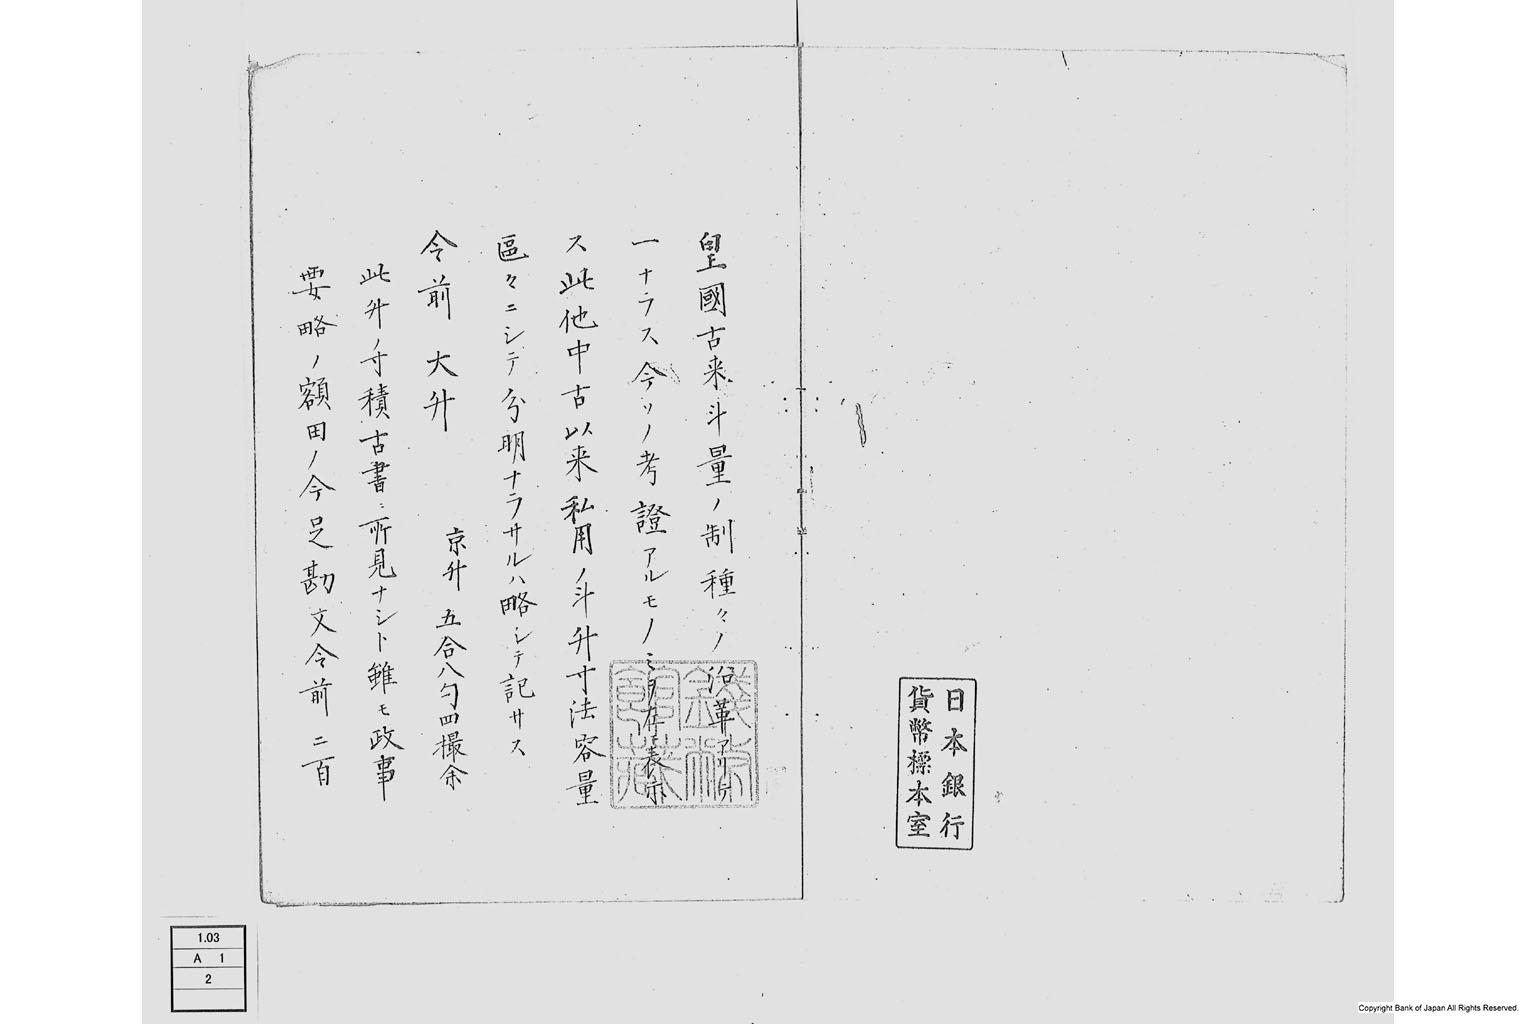 日本銀行
貨幣標本室
皇國古来斗量ノ制種々ノ沿革アリテ
一ナラス今ソノ考證アルモノノミヲ左ニ表示
ス此他中古以来私用ノ斗升寸法容量
區々ニシテ分明ナラサルハ略シテ記サス
今前大升 京升五合八勺四撮余
此升ノ寸積古書ニ所見ナシト雖モ政事
要略ノ額田ノ今足勘文今前ニ百
1.03
A 1
2
Copyright Bank of Japan All Rights Reserved.